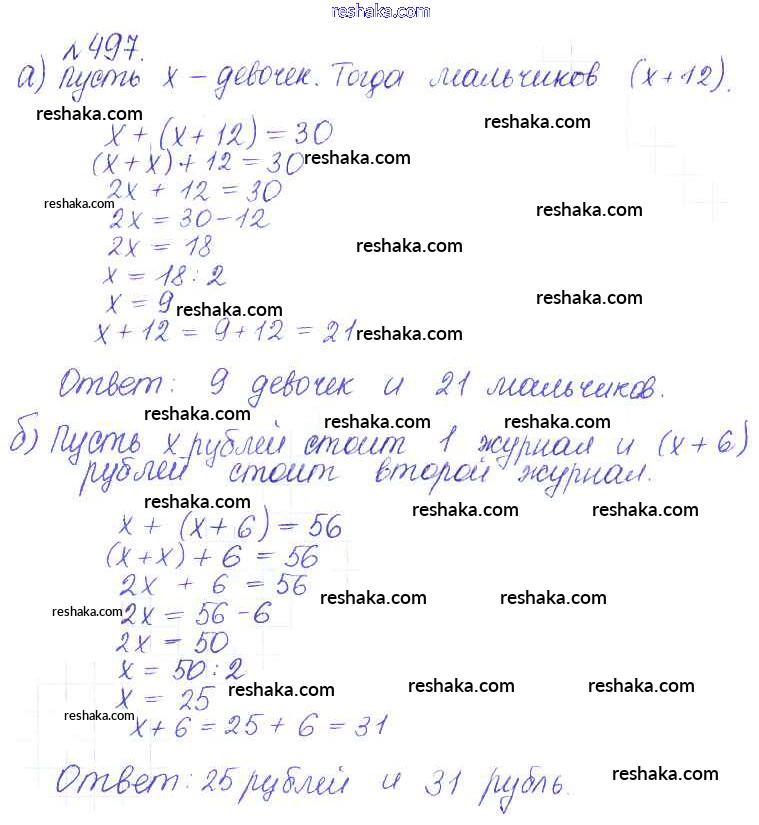 reshaka.com
№497.
а) Пусть x – девочек. Тогда мальчиков (x+12).
reshaka.com reshaka.com
x + (x + 12) = 30
(x + x) + 12 = 30 reshaka.com
2x + 12 = 30
reshaka.com reshaka.com
2x = 30 - 12
2x = 18 reshaka.com
x = 18 : 2
x = 9 reshaka.com reshaka.com
x + 12 = 9 + 12 = 21 reshaka.com
Ответ: 9 девочек и 21 мальчиков.
reshaka.com reshaka.com reshaka.com
б) Пусть x рублей стоит 1 журнал и (x + 6)
рублей стоит второй журнал.
reshaka.com reshaka.com reshaka.com
x + (x + 6) = 56
(x + x) + 6 = 56
2x + 6 = 56
reshaka.com reshaka.com
reshaka.com 2x = 56 - 6
2x = 50
x = 50 : 2
x = 25 reshaka.com reshaka.com reshaka.com
reshaka.com x + 6 = 25 + 6 = 31
Ответ: 25 рублей и 31 рубль. reshaka.com